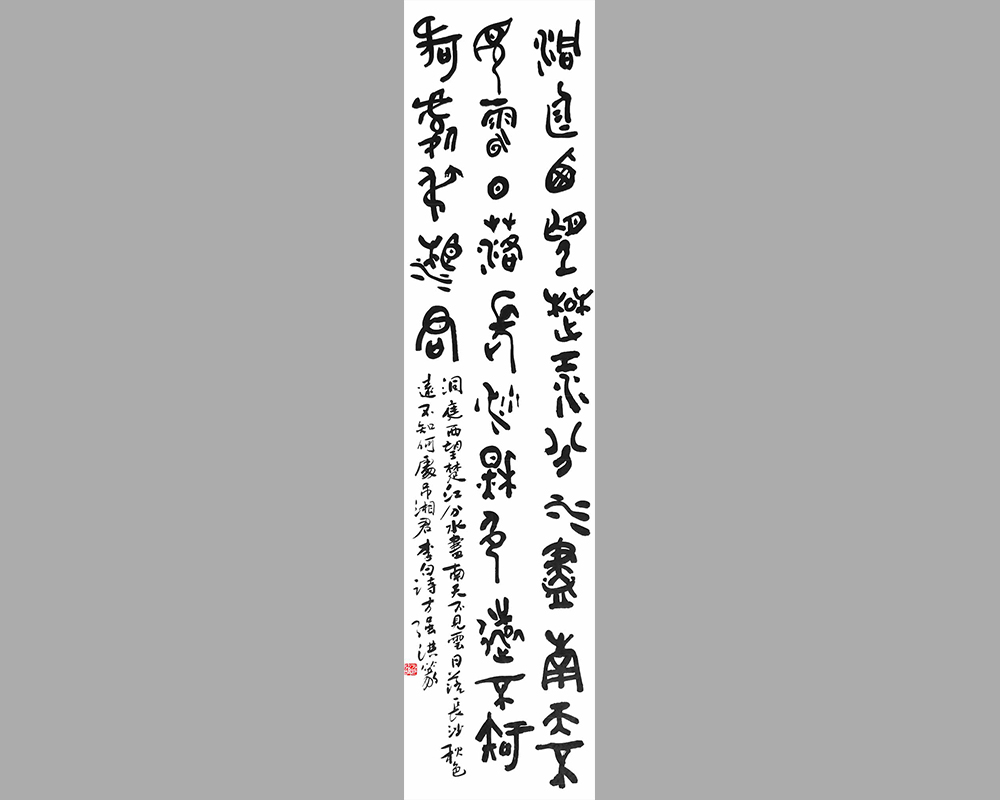 洞庭西望楚江分水盡南天不
見雲日落長沙秋色遠不知
何處弔湘君
洞庭西望楚江分水盡南天不見雲日落長沙秋色
遠不知何處吊湘君李白詩 洪篆